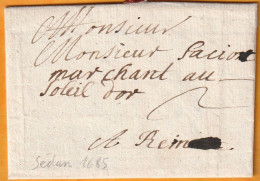 A Monsieur
Monsieur Sacio
marchant au
Soleil dor
2
A Reims.
Sedan 1685